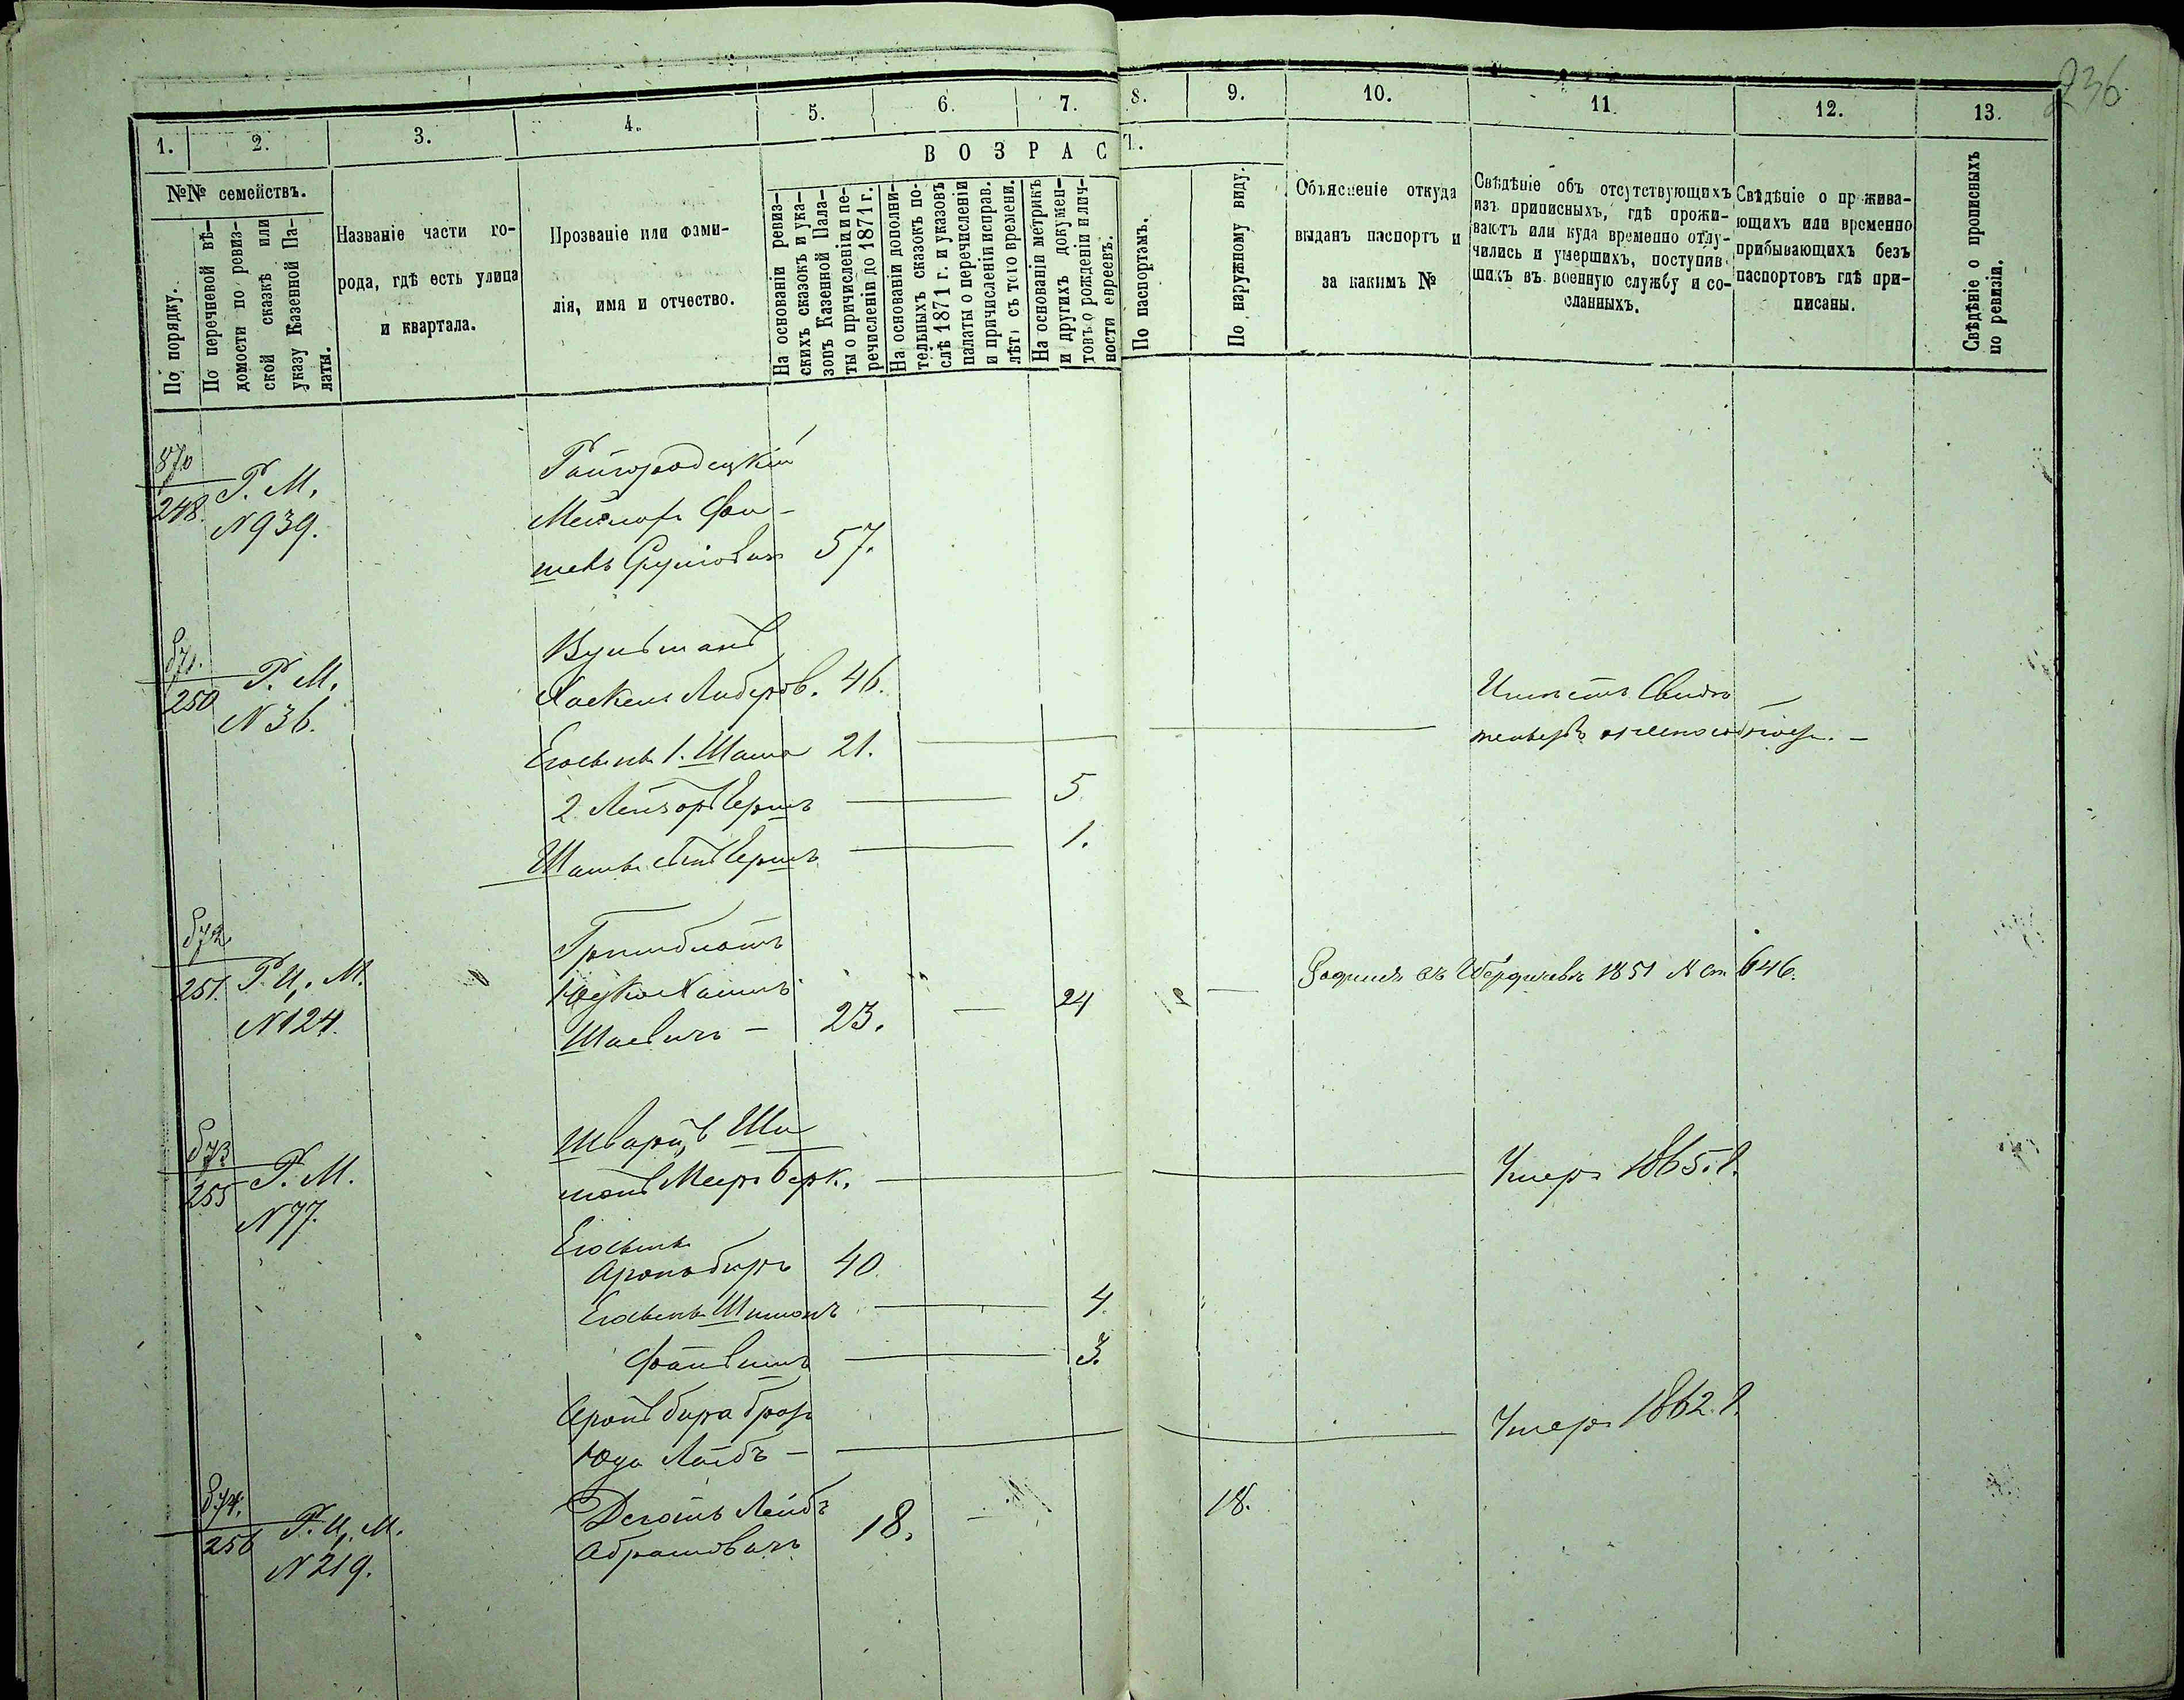 236
1.
2.
3.
4.
5.
6.
7.
8.
9.
10.
11.
12.
13.
ВОЗРАС
Т.
№№ семействъ.
По порядку.
По перечневой вѣ-
домости по ревиз-
ской сказкѣ или
указу Казенной Па-
латы.
Названіе части го-
рода, гдѣ есть улица
и квартала.
Прозваніе или фами-
лія, имя и отчество.
На основаніи ревиз-
скихъ сказокъ и ука-
зовъ Казенной Пала-
ты о причисленіи и пе-
речисленіи до 1871 г.
На основаніи дополни-
тельныхъ сказокъ по-
слѣ 1871 г. и указовъ
палаты о перечисленіи
и причисленіи исправ.
лѣтъ съ того времени.
На основаніи метрикъ
и другихъ докумен-
товъ о рожденіи и лич-
ности евреевъ.
По паспортамъ.
По наружному виду.
Объясненіе откуда
выданъ паспортъ и
за какимъ №
Свѣдѣніе объ отсутствующихъ
изъ приписныхъ, гдѣ прожи-
ваютъ или куда временно отлу-
чились и умершихъ, поступив-
шихъ въ военную службу и со-
сланныхъ.
Свѣдѣніе о прожива-
ющихъ или временно
прибывающихъ безъ
паспортовъ гдѣ при-
писаны.
Свѣдѣніе о прописныхъ
по ревизіи.
870
248.
Р. М.
N 939.
Райгородецкій
Мейлоръ Фай-
шель Сруліовичъ 57.
871.
250
Р. М.
N 36.
Вульманъ
Хаскель Либеров. 46.
Его сынъ 1. Шама 21.
2 Лейзоръ Гершъ — 5
Шамы сынъ Гершъ — 1.
872
251.
Р. И. М.
N 124.
Гринблатъ
Юдко Хаимъ
Шаевичъ — 23. — 24 —
Родился въ Бердичевѣ 1851 N ст. 646.
873
255
Р. М.
N 77.
Шварцъ Ши
монъ Мееръ Берк. — Умеръ 1865 г.
Его сынъ
Аронъ Биръ 40.
Его сынъ Шимонъ — 4.
Файвишъ — 3.
Аронъ Бира братъ
Юда Лейбъ — Умеръ 1862 г.
874.
256
Р. И. М.
N 219.
Деготь Лейбъ
Абрамовичъ 18. — 18.